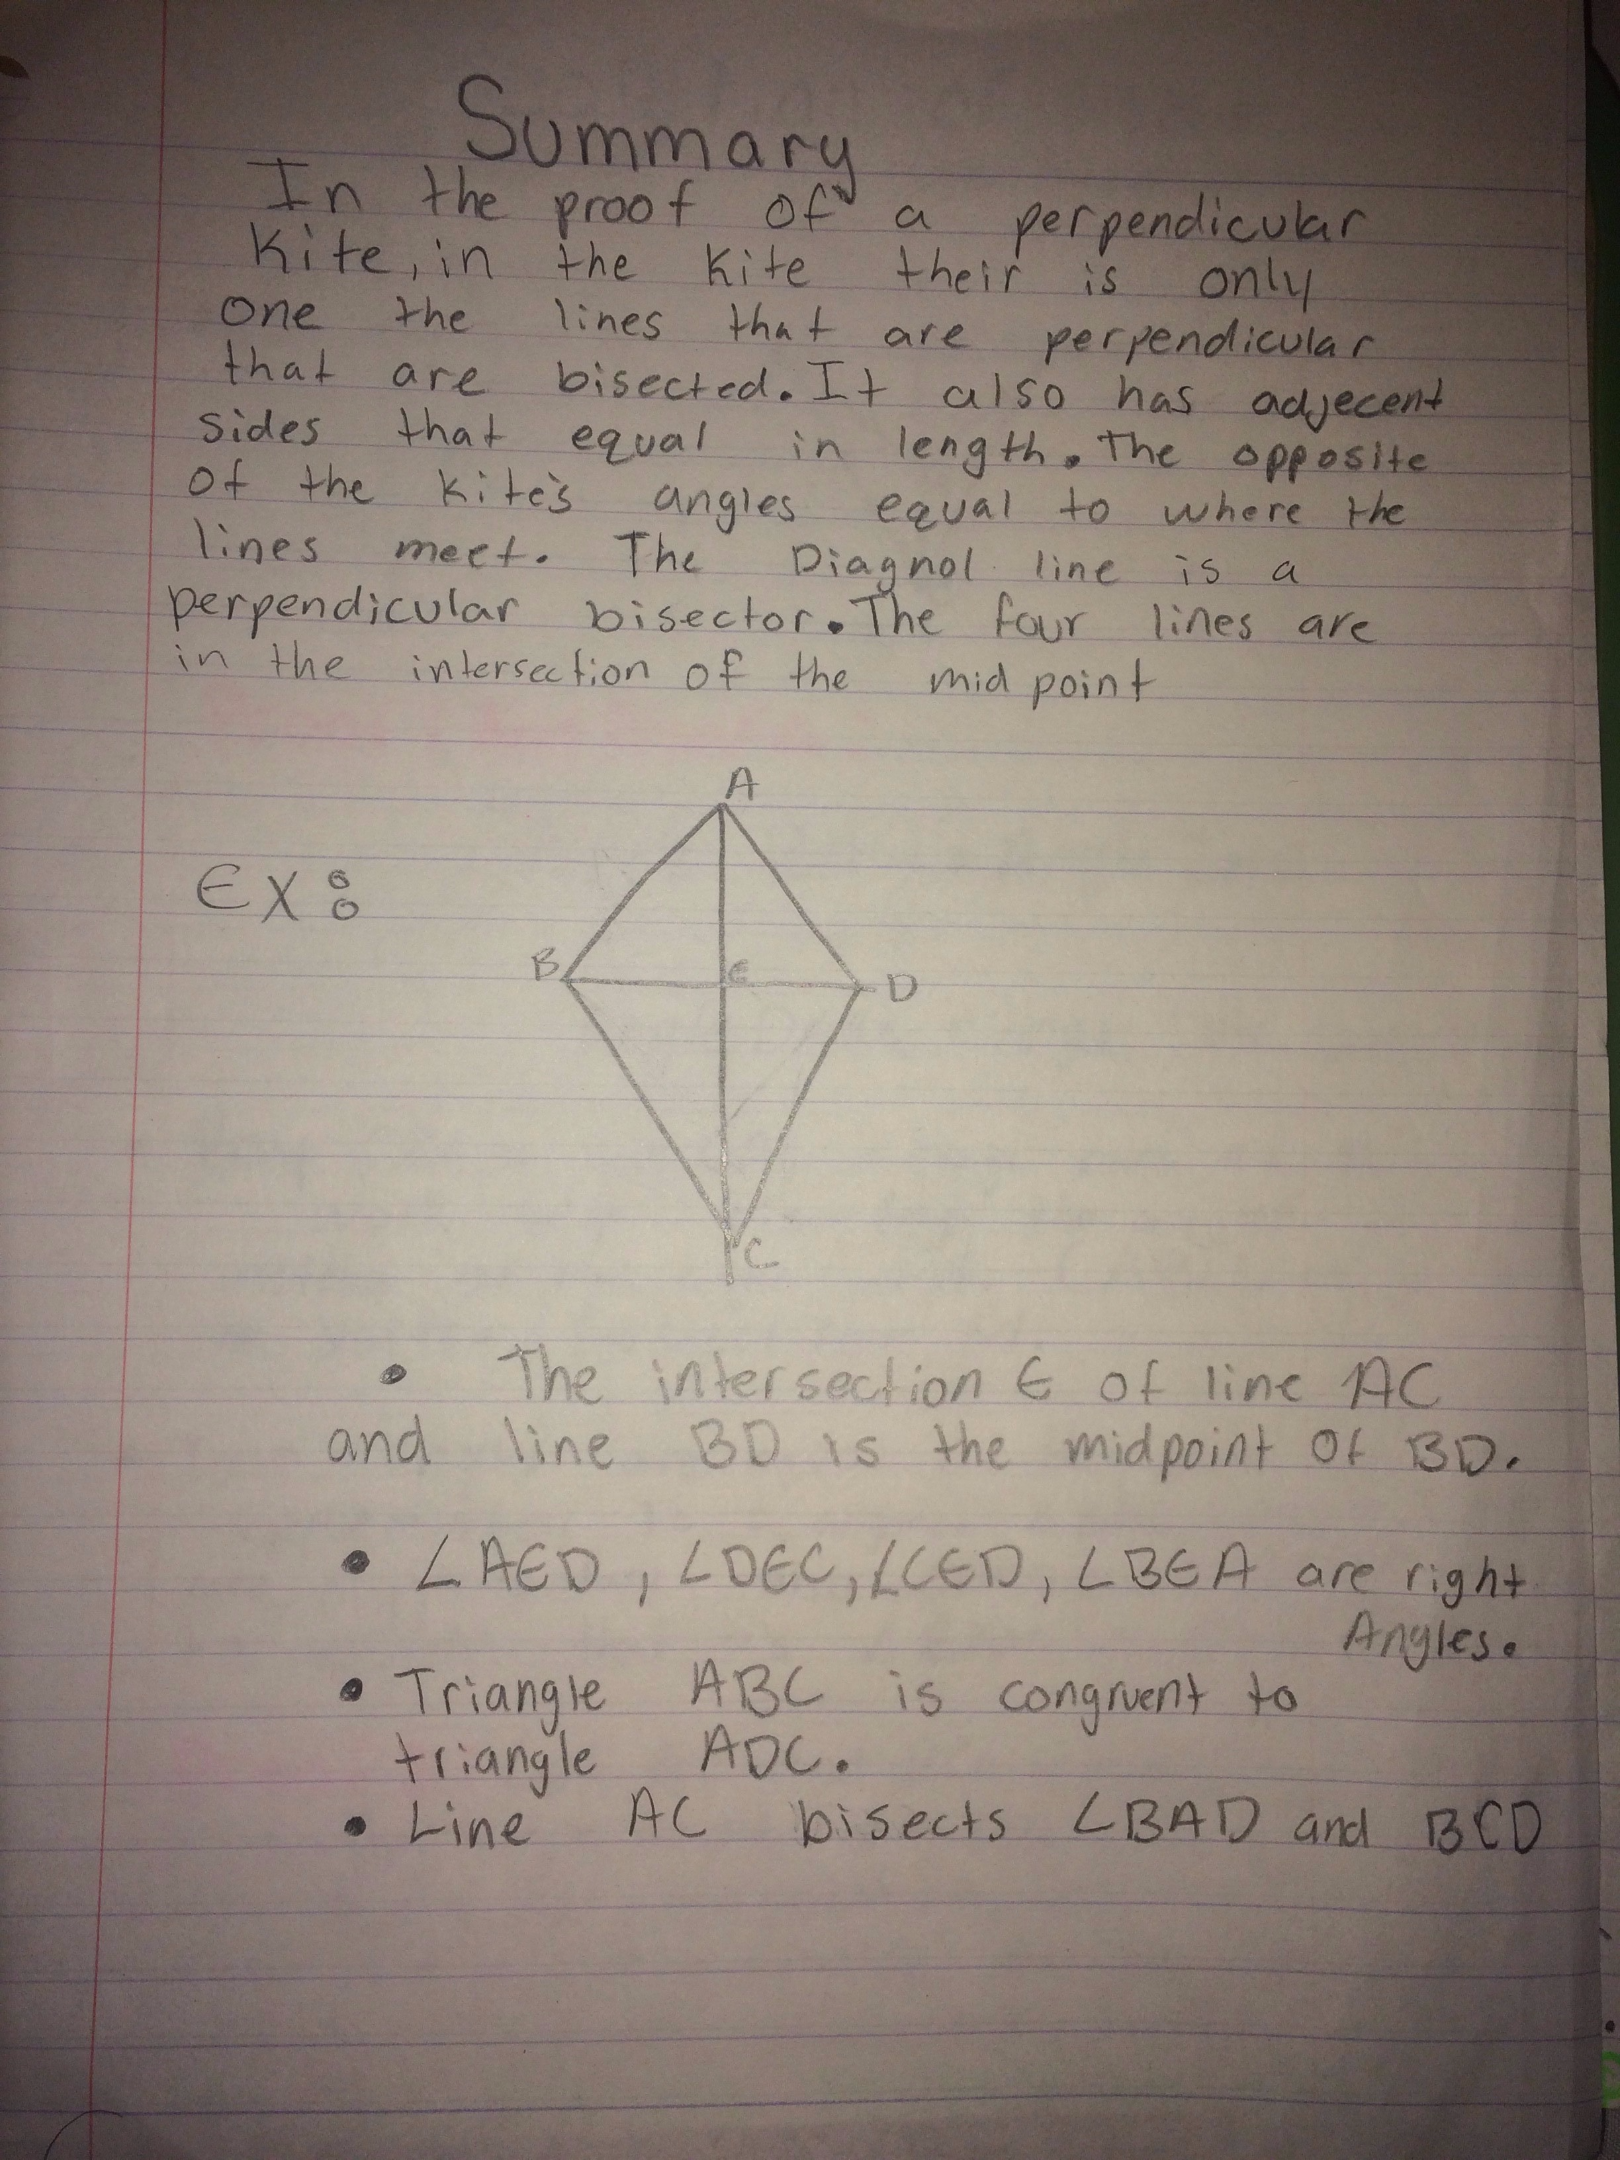 Summary
In the proof of a perpendicular
Kite, in the Kite their is only
one the lines that are perpendicular
that are bisected. It also has adjecent
sides that equal in length. The opposite
of the Kite's angles equal to where the
lines meet. The Diagnol line is a
perpendicular bisector. The four lines are
in the intersection of the mid point
A
EX:
B E D
C
• The intersection E of line AC
and line BD is the midpoint of BD.
• ∠AED, ∠DEC, ∠CED, ∠BEA are right
Angles.
• Triangle ABC is congruent to
triangle ADC.
• Line AC bisects ∠BAD and BCD